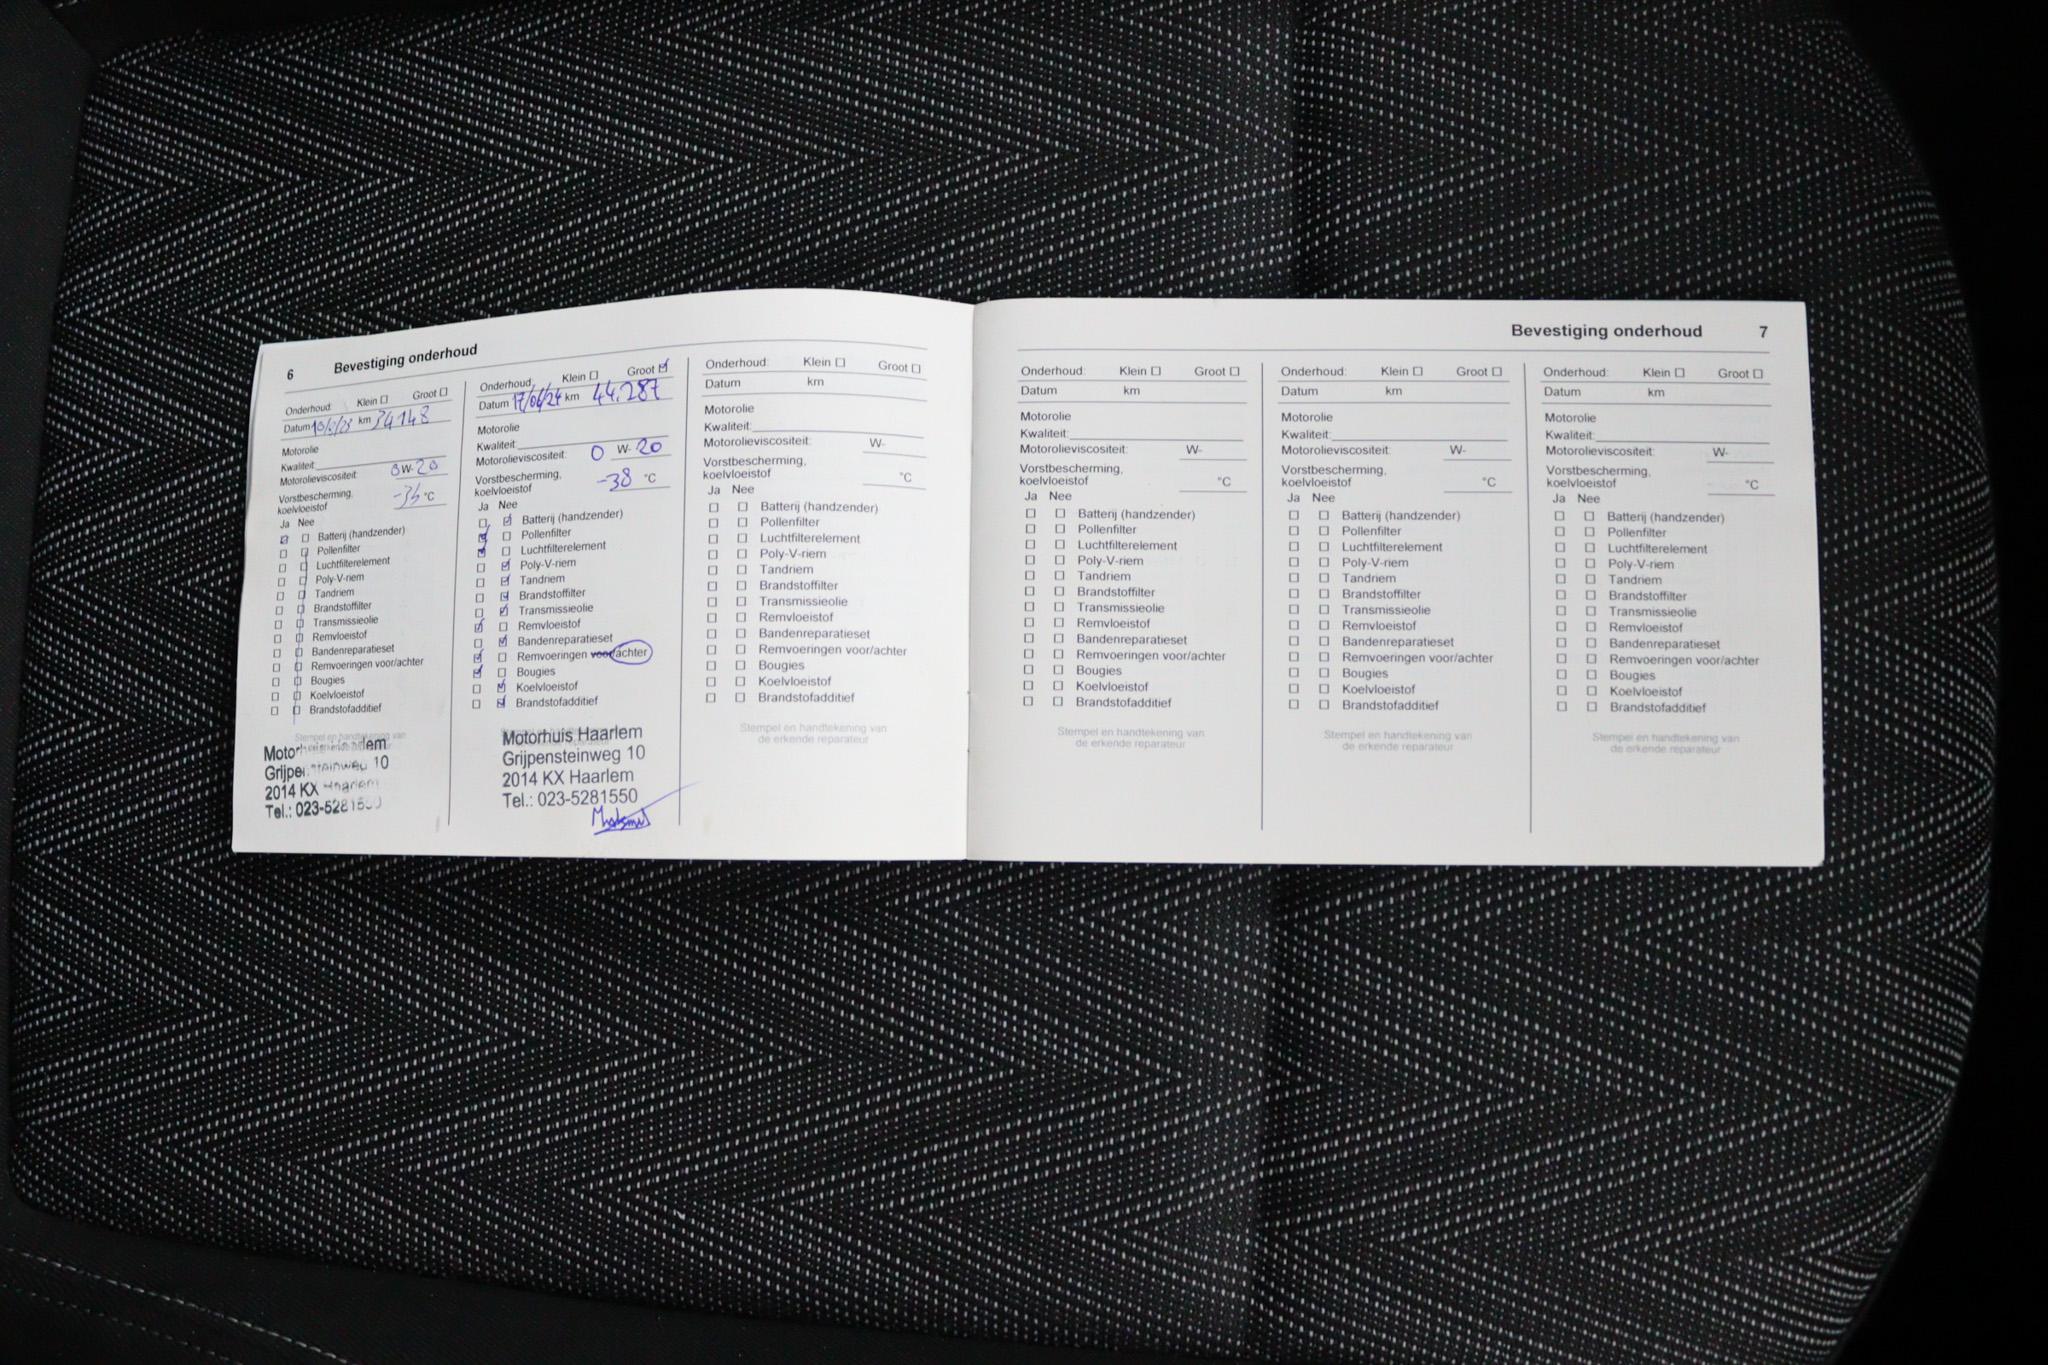 6 Bevestiging onderhoud
Onderhoud: Klein ☐ Groot ☐
Datum km 34148
Motorolie
Kwaliteit:
Motorolieviscositeit: 0 W- 20
Vorstbescherming,
koelvloeistof °C
Ja Nee
☑ ☐ Batterij (handzender)
☐ ☐ Pollenfilter
☐ ☐ Luchtfilterelement
☐ ☐ Poly-V-riem
☐ ☐ Tandriem
☐ ☐ Brandstoffilter
☐ ☐ Transmissieolie
☐ ☐ Remvloeistof
☐ ☐ Bandenreparatieset
☐ ☐ Remvoeringen voor/achter
☐ ☐ Bougies
☐ ☐ Koelvloeistof
☐ ☐ Brandstofadditief
Stempel en handtekening van
Grijpensteinweg 10
2014 KX Haarlem
Tel.: 023-5281550
Onderhoud: Klein ☐ Groot ☑
Datum 17/06/24 km 44.287
Motorolie
Kwaliteit:
Motorolieviscositeit: 0 W- 20
Vorstbescherming,
koelvloeistof -38 °C
Ja Nee
☐ ☑ Batterij (handzender)
☑ ☐ Pollenfilter
☑ ☐ Luchtfilterelement
☐ ☑ Poly-V-riem
☐ ☑ Tandriem
☐ ☑ Brandstoffilter
☐ ☑ Transmissieolie
☑ ☐ Remvloeistof
☐ ☑ Bandenreparatieset
☑ ☐ Remvoeringen voor/achter
☑ ☐ Bougies
☐ ☑ Koelvloeistof
☐ ☑ Brandstofadditief
Motorhuis Haarlem
Grijpensteinweg 10
2014 KX Haarlem
Tel.: 023-5281550
Onderhoud: Klein ☐ Groot ☐
Datum km
Motorolie
Kwaliteit:
Motorolieviscositeit: W-
Vorstbescherming,
koelvloeistof °C
Ja Nee
☐ ☐ Batterij (handzender)
☐ ☐ Pollenfilter
☐ ☐ Luchtfilterelement
☐ ☐ Poly-V-riem
☐ ☐ Tandriem
☐ ☐ Brandstoffilter
☐ ☐ Transmissieolie
☐ ☐ Remvloeistof
☐ ☐ Bandenreparatieset
☐ ☐ Remvoeringen voor/achter
☐ ☐ Bougies
☐ ☐ Koelvloeistof
☐ ☐ Brandstofadditief
Stempel en handtekening van
de erkende reparateur
Bevestiging onderhoud 7
Onderhoud: Klein ☐ Groot ☐
Datum km
Motorolie
Kwaliteit:
Motorolieviscositeit: W-
Vorstbescherming,
koelvloeistof °C
Ja Nee
☐ ☐ Batterij (handzender)
☐ ☐ Pollenfilter
☐ ☐ Luchtfilterelement
☐ ☐ Poly-V-riem
☐ ☐ Tandriem
☐ ☐ Brandstoffilter
☐ ☐ Transmissieolie
☐ ☐ Remvloeistof
☐ ☐ Bandenreparatieset
☐ ☐ Remvoeringen voor/achter
☐ ☐ Bougies
☐ ☐ Koelvloeistof
☐ ☐ Brandstofadditief
Stempel en handtekening van
de erkende reparateur
Onderhoud: Klein ☐ Groot ☐
Datum km
Motorolie
Kwaliteit:
Motorolieviscositeit: W-
Vorstbescherming,
koelvloeistof °C
Ja Nee
☐ ☐ Batterij (handzender)
☐ ☐ Pollenfilter
☐ ☐ Luchtfilterelement
☐ ☐ Poly-V-riem
☐ ☐ Tandriem
☐ ☐ Brandstoffilter
☐ ☐ Transmissieolie
☐ ☐ Remvloeistof
☐ ☐ Bandenreparatieset
☐ ☐ Remvoeringen voor/achter
☐ ☐ Bougies
☐ ☐ Koelvloeistof
☐ ☐ Brandstofadditief
Stempel en handtekening van
de erkende reparateur
Onderhoud: Klein ☐ Groot ☐
Datum km
Motorolie
Kwaliteit:
Motorolieviscositeit: W-
Vorstbescherming,
koelvloeistof °C
Ja Nee
☐ ☐ Batterij (handzender)
☐ ☐ Pollenfilter
☐ ☐ Luchtfilterelement
☐ ☐ Poly-V-riem
☐ ☐ Tandriem
☐ ☐ Brandstoffilter
☐ ☐ Transmissieolie
☐ ☐ Remvloeistof
☐ ☐ Bandenreparatieset
☐ ☐ Remvoeringen voor/achter
☐ ☐ Bougies
☐ ☐ Koelvloeistof
☐ ☐ Brandstofadditief
Stempel en handtekening van
de erkende reparateur